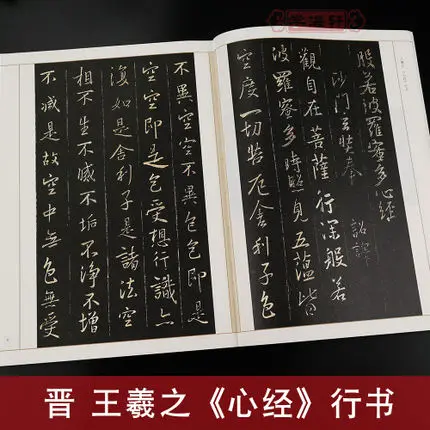 般若波羅蜜多心經
沙門玄奘奉 詔譯
觀自在菩薩行深般若
波羅蜜多時照見五蘊皆
空度一切苦厄舍利子色
不異空空不異色色即是
空空即是色受想行識亦
復如是舍利子是諸法空
相不生不滅不垢不淨不增
不減是故空中無色無受
晋 王羲之《心经》行书